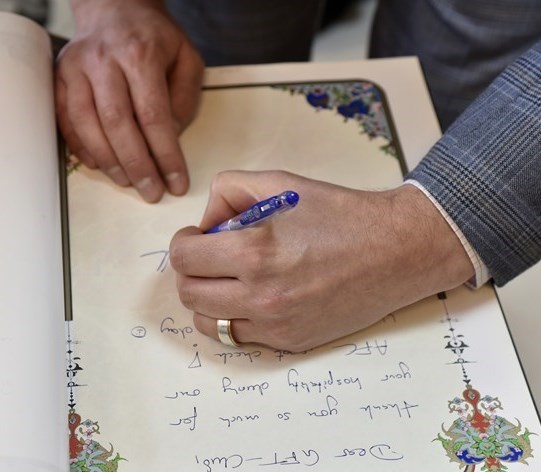 Dear GFT-Club,
thank you so much for
your hospitality during our
AFC check! day